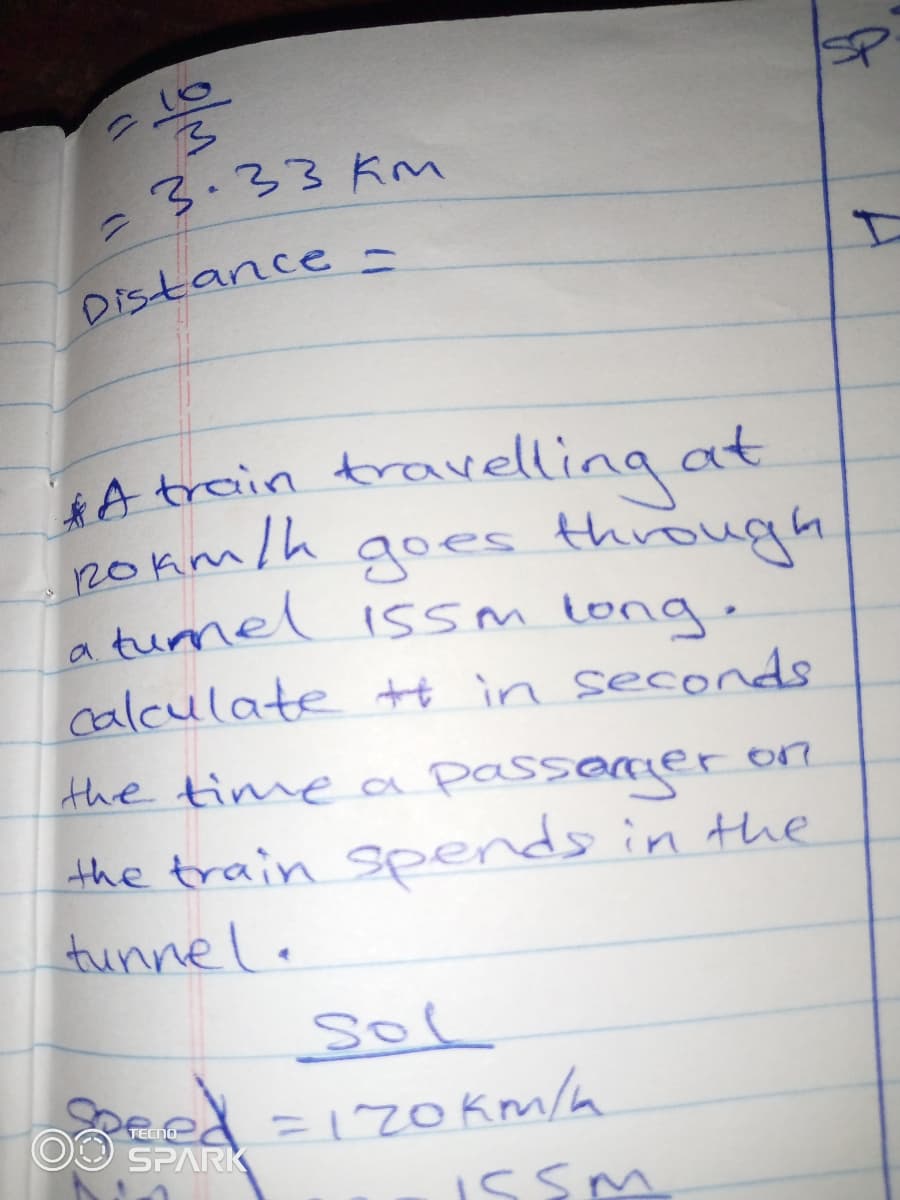 = 10
3
= 3.33 Km
Distance =
* A train travelling at
120km/h goes through
a tunnel 155m long.
calculate tt in seconds
the time a passanger on
the train spends in the
tunnel.
Sol
Speed = 120km/h
155m
SP
D
TECNO
SPARK